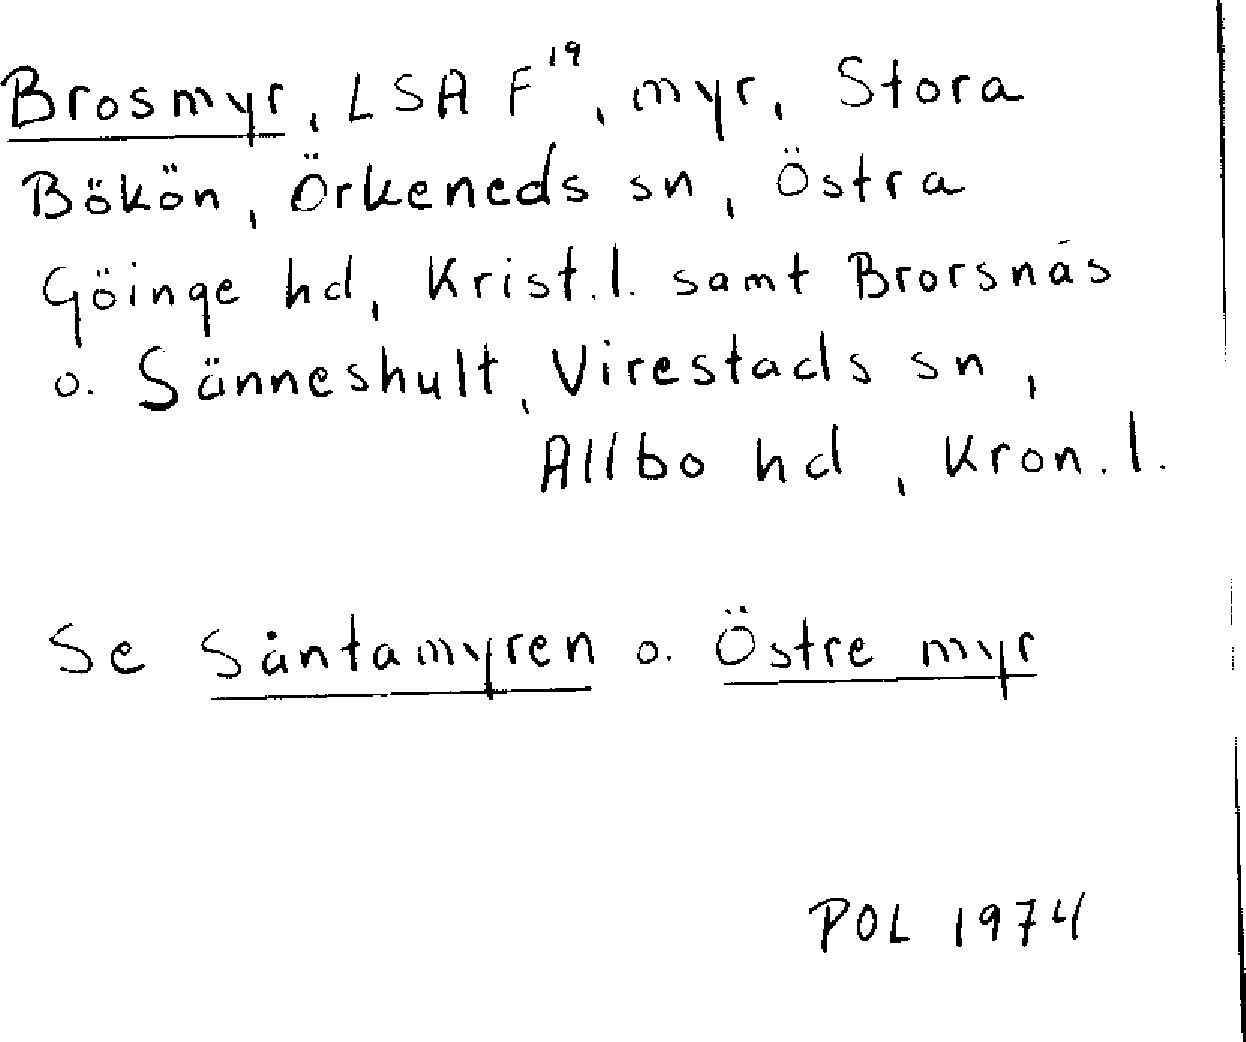 Brosmyr, LSA F¹⁹, myr, Stora
Bökön, Örkeneds sn, Östra
Göinge hd, Krist.l. samt Brorsnäs
o. Sänneshult, Virestads sn,
Allbo hd, Kron.l.
Se Såntamyren o. Östre myr
POL 1974